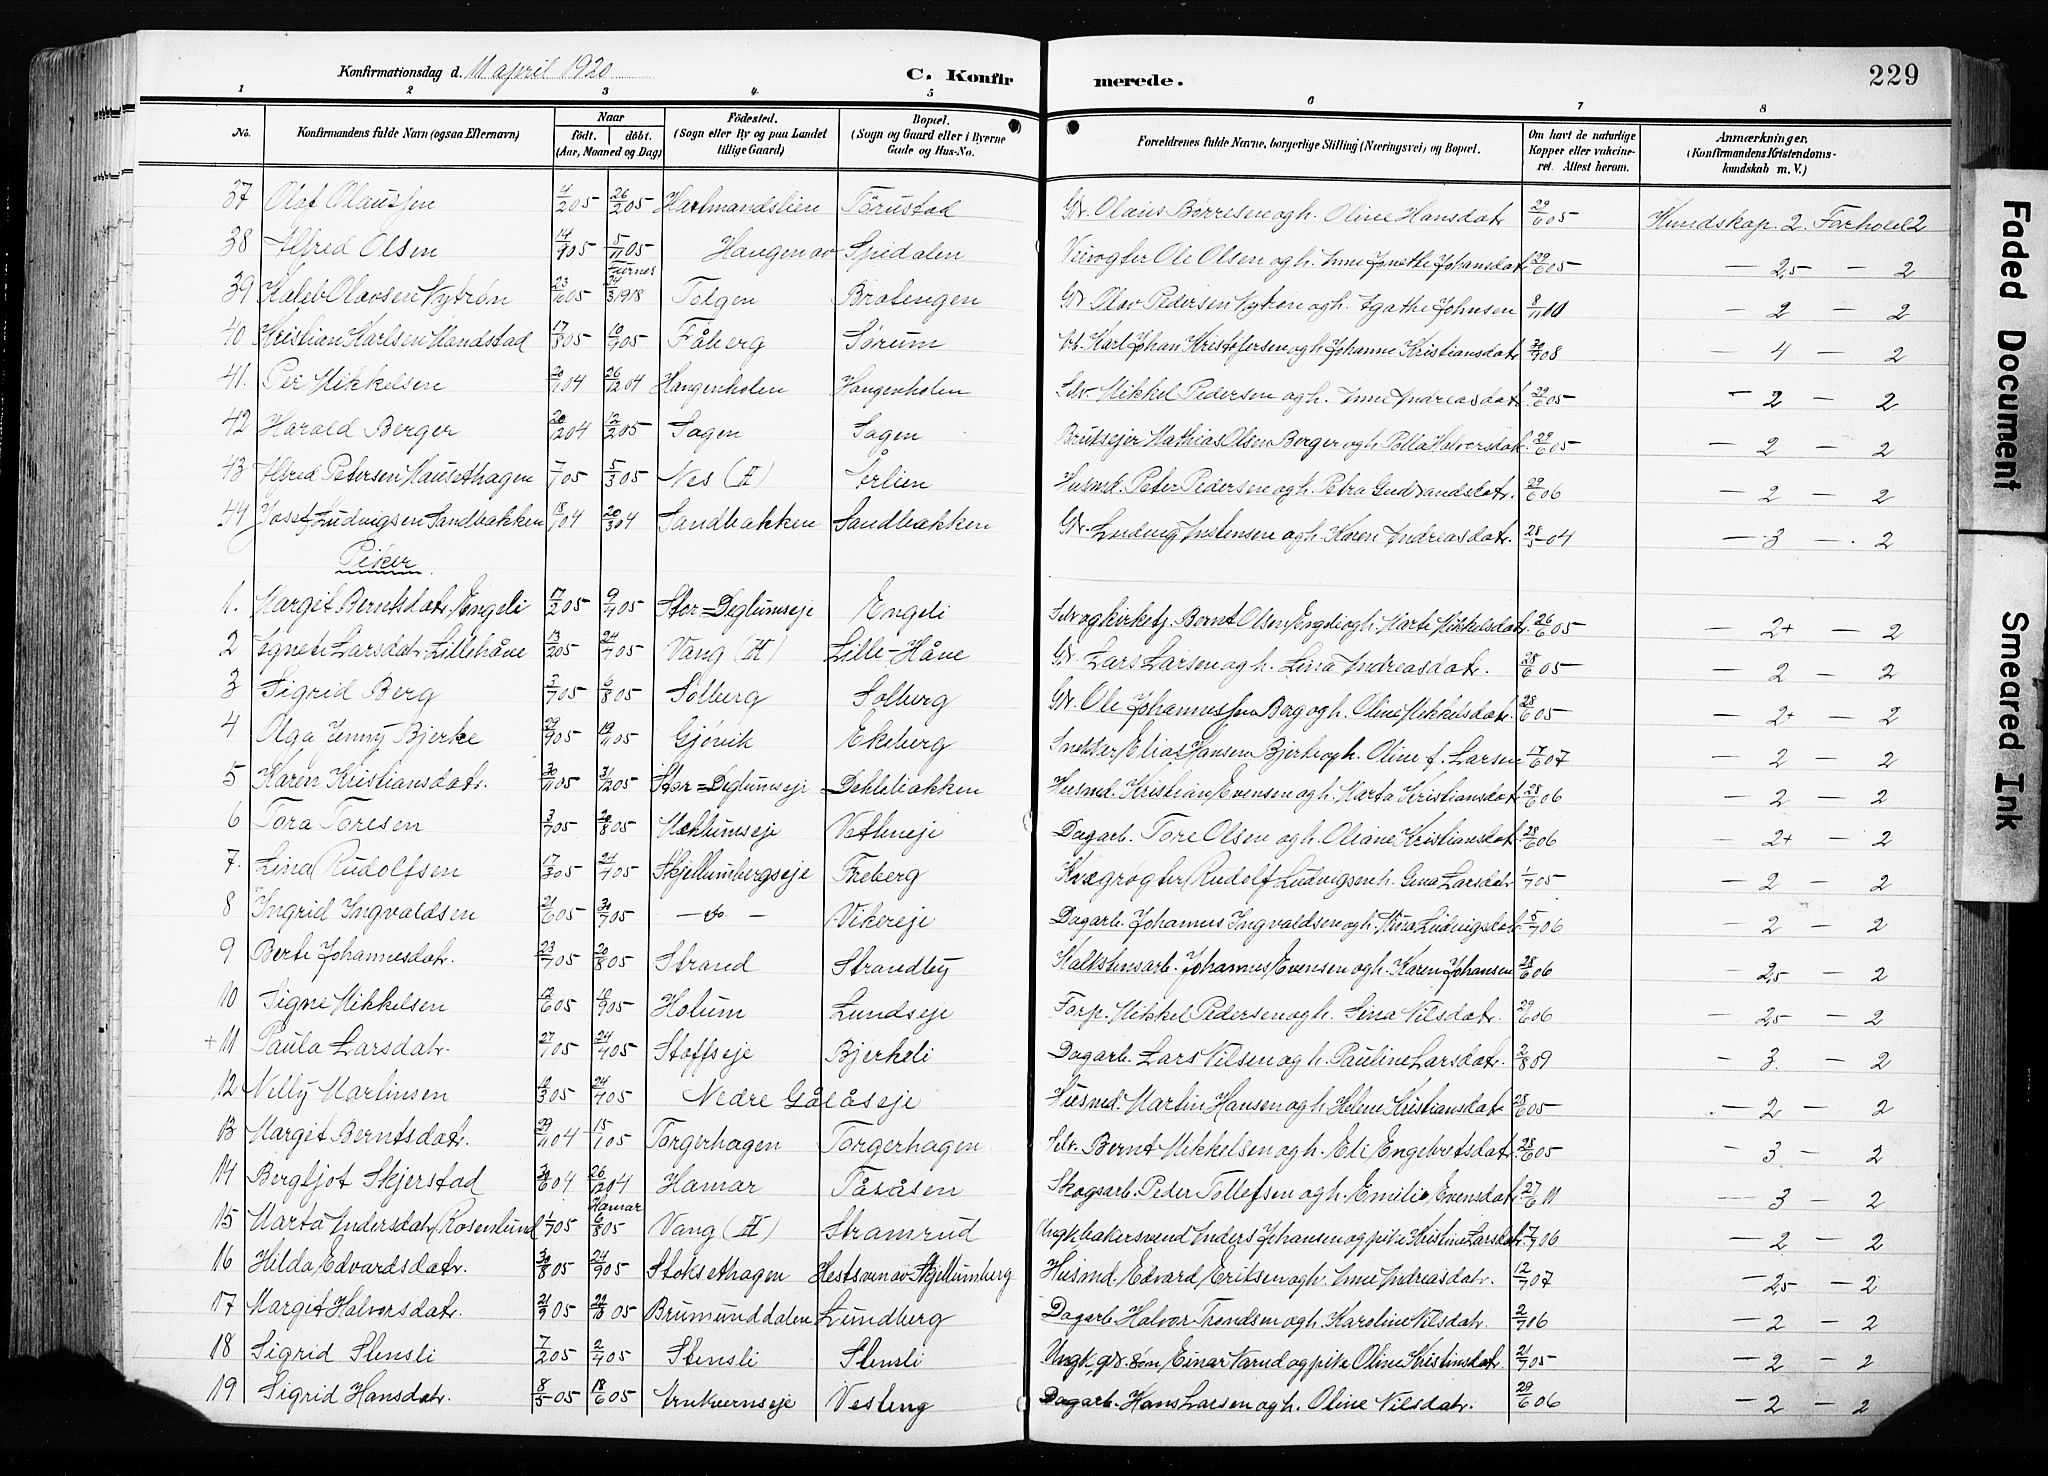 Konfirmationsdag d. 11 april 1920 C. Konfir merede. 229
1 2 3 4 5 6 7 8
No. Konfirmandens fulde Navn (ogsaa Efternavn) Naar født. døbt. (Aar, Maaned og Dag) Fødested. (Sogn eller By og paa Landet tillige Gaard) Bopæl. (Sogn og Gaard eller i Byerne Gade og Hus-No. Forældrenes fulde Navne, borgerlige Stilling (Næringsvei) og Bopæl. Om havt de naturlige Kopper eller vakcineret. Attest herom. Anmærkninger. (Konfirmandens Kristendomskundskab m. V.)
37 Olaf Olaussen 4/2 05 26/2 05 Hartmandslien Tørustad Gbr. Olaus Børresen og h. Oline Hansdatr. 29/6 05 Kundskap. 2. Forhold 2
38 Alfred Olsen 14/9 05 5/11 05 Haugen av Spidalen Veivogter Ole Olsen og h. Anne Jonette Johansdatr. 29/6 05 — 2,5 — 2
39 Kaleb Olavsen Nytrøn 23/6 05 Furnes 24/3 1918 Tolgen Bratengen Gbr. Olav Pedersen Nytrøn og h. Agathe Johnsen 8/11 10 — 2 — 2
40 Kristian Karlsen Mandstad 17/3 05 10/7 05 Fåberg Sørum Arb. Karl Johan Kristofersen og h. Johanne Kristiansdatr. 30/7 08 — 4 — 2
41. Per Mikkelsen 20/11 04 26/12 04 Haugenholen Haugenholen Selv. Mikkel Pedersen og h. Anne Andreasdatr. 29/6 05 — 2 — 2
42 Harald Berger 20/12 04 12/2 05 Sagen Sagen Bruksejer Mathias Olsen Berger og h. Polla Halvorsdatr. 29/6 05 — 2 — 2
43 Alfred Petersen Hausethagen 7/1 05 5/3 05 Nes (H) Årlien Husmd. Peter Pedersen og h. Petra Gudbrandsdatr. 29/6 06 — 2 — 2
44 Josef Ludvigsen Sandbakken 18/1 04 20/3 04 Sandbakken Sandbakken Gbr. Ludvig Antensen og h. Karen Andreasdatr. 28/5 04 — 3 — 2
Piker.
1. Margit Berntsdatr. Engeli 17/2 05 9/4 05 Stor-Deglumseje Engeli Selv og kirketj. Bernt Olsen Engeli og h. Marte Mikkelsdatr. 26/6 05 — 2+ — 2
2 Agnete Larsdatr. Lillehåve 13/2 05 24/4 05 Vang (H) Lille-Håve Gbr. Lars Larsen og h. Lina Andreasdatr. 28/6 05 — 2 — 2
3 Sigrid Berg 2/7 05 6/8 05 Solberg Solberg Gbr. Ole Johannessen Berg og h. Oline Mikkelsdatr. 28/6 05 — 2+ — 2
4 Olga Jenny Bjerke 29/9 05 19/11 05 Gjøvik Ekeberg Snekker Elias Hansen Bjerke og h. Oline f. Larsen 17/6 07 — 2 — 2
5 Karen Kristiansdatr. 30/11 05 31/12 05 Stor-Deglumseje Dehlibakken Husmd. Kristian Evensen og h. Marta Kristiansdatr. 28/6 06 — 2 — 2
6 Tora Toresen 3/7 05 20/8 05 Mæhlumseje Vetteneje Dagarb. Tore Olsen og h. Oliane Kristiansdatr. 28/6 06 — 2+ — 2
7. Lina Rudolfsen 17/3 05 24/4 05 Skjellumbergseje Freberg Kvægrøgter Rudolf Ludvigsen h. Gina Larsdatr. 1/7 05 — 2 — 2
8 Ingrid Ingvaldsen 21/6 05 30/7 05 — do — Vikereje Dagarb. Johannes Ingvaldsen og h. Stina Ludvigsdatr. 5/7 06 — 2 — 2
9 Berte Johannesdatr. 23/7 05 20/8 05 Strand Strandby Kalkstensarb. Johannes Evensen og h. Karen Johansen 28/6 06 — 2,5 — 2
10 Signe Mikkelsen 12/6 05 10/9 05 Holum Lundseje Forp. Mikkel Pedersen og h. Sina Nilsdatr. 29/6 06 — 2,5 — 2
+ 11 Paula Larsdatr. 27/1 05 24/4 05 Stoffseje Bjerkeli Dagarb. Lars Nilsen og h. Pauline Larsdatr. 2/8 09 — 3 — 2
12 Nelly Martinsen 12/3 05 24/4 05 Nedre Gålåseje Husmd. Martin Hansen og h. Helene Kristiansdatr. 28/6 05 — 2 — 2
13 Margit Berntsdatr. 29/11 04 15/1 05 Torgerhagen Torgerhagen Selv. Bernt Mikkelsen og h. Eli Engebretsdatr. 28/6 05 — 3 — 2
14 Bergljot Skjerstad 30/6 04 26/12 04 Hamar Tåsåsen Skogsarb. Peder Tollefsen og h. Emilie Evensdatr. 27/6 11 — 3 — 2
15 Marta Andersdatr. Rosenlund 1/7 05 Hamar 6/8 05 Vang (H) Stramrud Ungk. bakersvend Anders Johansen og pike Kristine Larsdatr. 7/7 06 — 2 — 2
16 Hilda Edvardsdatr. 30/8 05 24/9 05 Stoksethagen Hestsven av Skjellumberg Husmd. Edvard Eriksen og h. Anne Andreasdatr. 12/7 07 — 2,5 — 2
17 Margit Halvorsdatr. 21/9 05 22/10 05 Brumunddalen Lundberg Dagarb. Halvor Trondsen og h. Karoline Nilsdatr. 2/7 06 — 2 — 2
18 Sigrid Stensli 7/2 05 2/4 05 Stensli Stensli Ungk. gbr. søn Einar Narud og pike Oline Kristinsdatr. 21/7 05 — 2 — 2
19 Sigrid Hansdatr. 8/5 05 18/6 05 Arnkvernseje Vesteng Dagarb. Hans Larsen og h. Oline Nilsdatr. 29/6 06 — 2 — 2
Faded Document
Smeared Ink